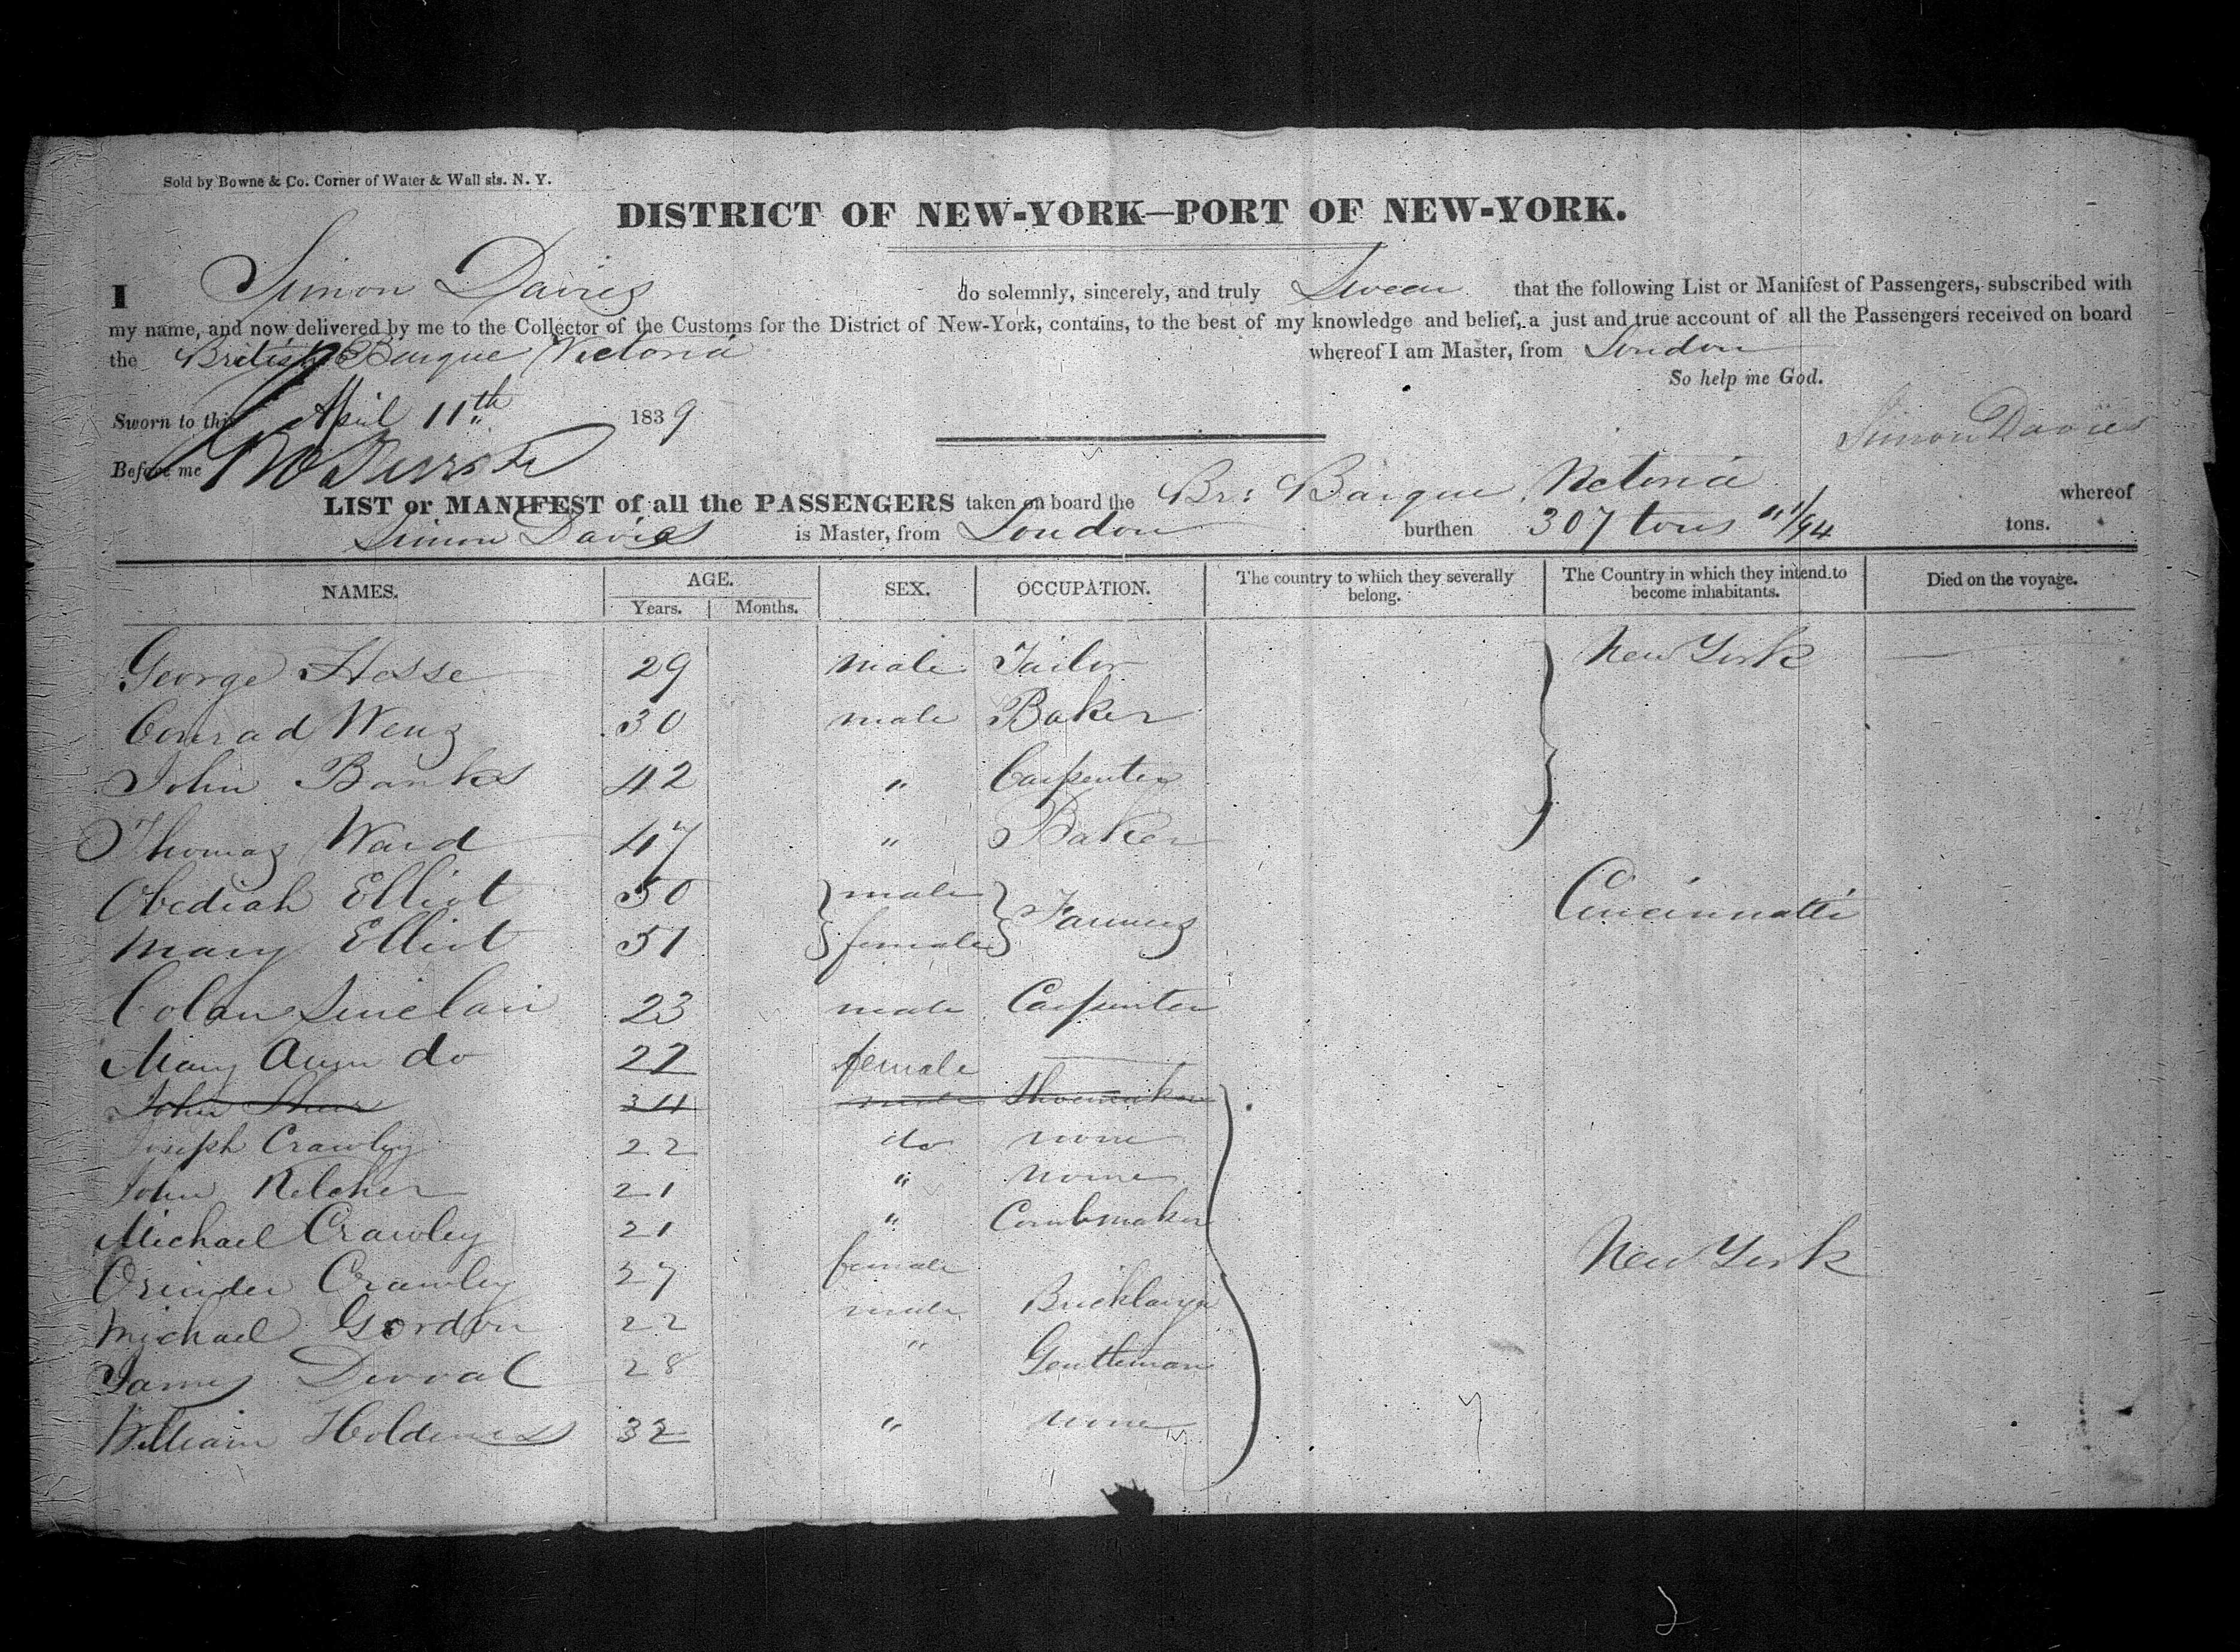 Sold by Bowne & Co. Corner of Water & Wall sts. N. Y.
DISTRICT OF NEW-YORK—PORT OF NEW-YORK.
I Simon Davies do solemnly, sincerely, and truly Swear that the following List or Manifest of Passengers, subscribed with
my name, and now delivered by me to the Collector of the Customs for the District of New-York, contains, to the best of my knowledge and belief, a just and true account of all the Passengers received on board
the British Barque Victoria whereof I am Master, from London
So help me God.
Sworn to this April 11th 1839
Simon Davies
Before me
LIST or MANIFEST of all the PASSENGERS taken on board the Br: Barque Victoria whereof
Simon Davies is Master, from London burthen 307 tons 11/94 tons.
NAMES. AGE. SEX. OCCUPATION. The country to which they severally belong. The Country in which they intend to become inhabitants. Died on the voyage.
Years. Months.
George Hesse 29 male Tailor New York —
Conrad Wenz 30 male Baker
John Banks 42 " Carpenter
Thomas Ward 47 " Baker
Obediah Elliot 50 male Farmers Cincinnatti
Mary Elliot 51 female
Colan Sinclair 23 male Carpenter
Mary Ann do 22 female —
John 34 male Shoemaker
Joseph Crawley 22 do none
John Kelcher 21 " none
Michael Crawley 21 " Combmaker
Crawley 27 female New York
Michael Gordon 22 male Bricklayer
James 28 " Gentleman
William 32 " none